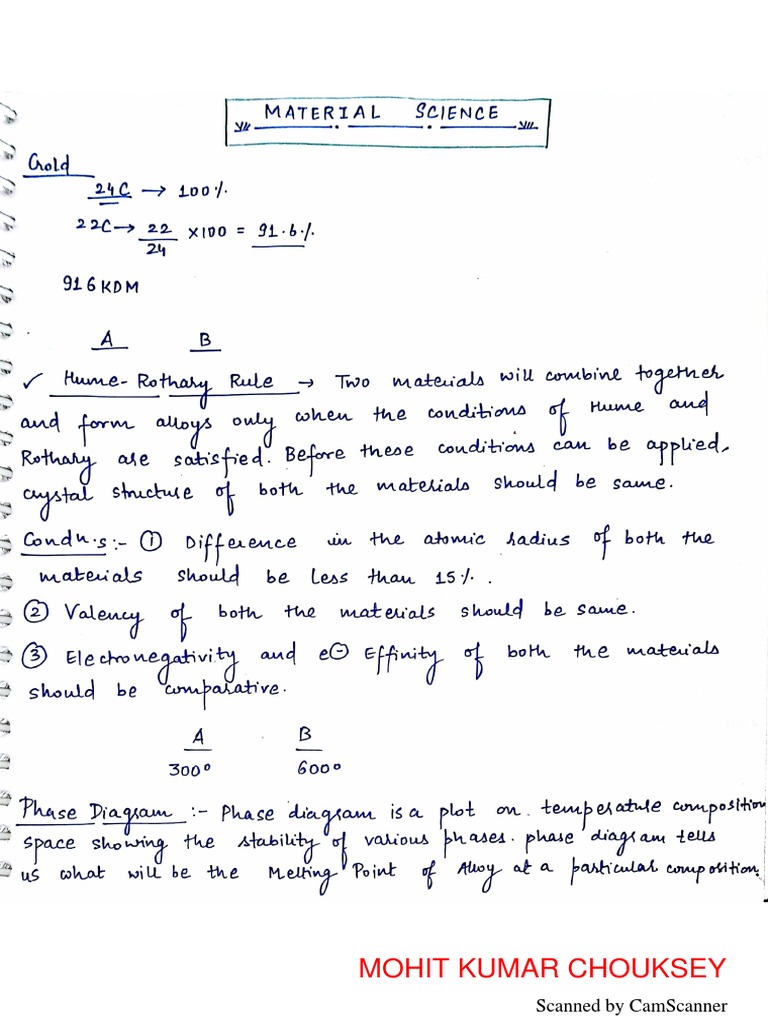 MATERIAL SCIENCE
Gold
24C → 100%
22C → 22/24 ×100 = 91.6%
916 KDM
A B
✓ Hume-Rothary Rule → Two materials will combine together
and form alloys only when the conditions of Hume and
Rothary are satisfied. Before these conditions can be applied,
crystal structure of both the materials should be same.
Condn.s:- ① Difference in the atomic radius of both the
materials should be less than 15%.
② Valency of both the materials should be same.
③ Electronegativity and e⊖ Effinity of both the materials
should be comparative.
A B
300° 600°
Phase Diagram :- Phase diagram is a plot on temperature composition
space showing the stability of various phases. phase diagram tells
us what will be the Melting Point of Alloy at a particular composition.
MOHIT KUMAR CHOUKSEY
Scanned by CamScanner